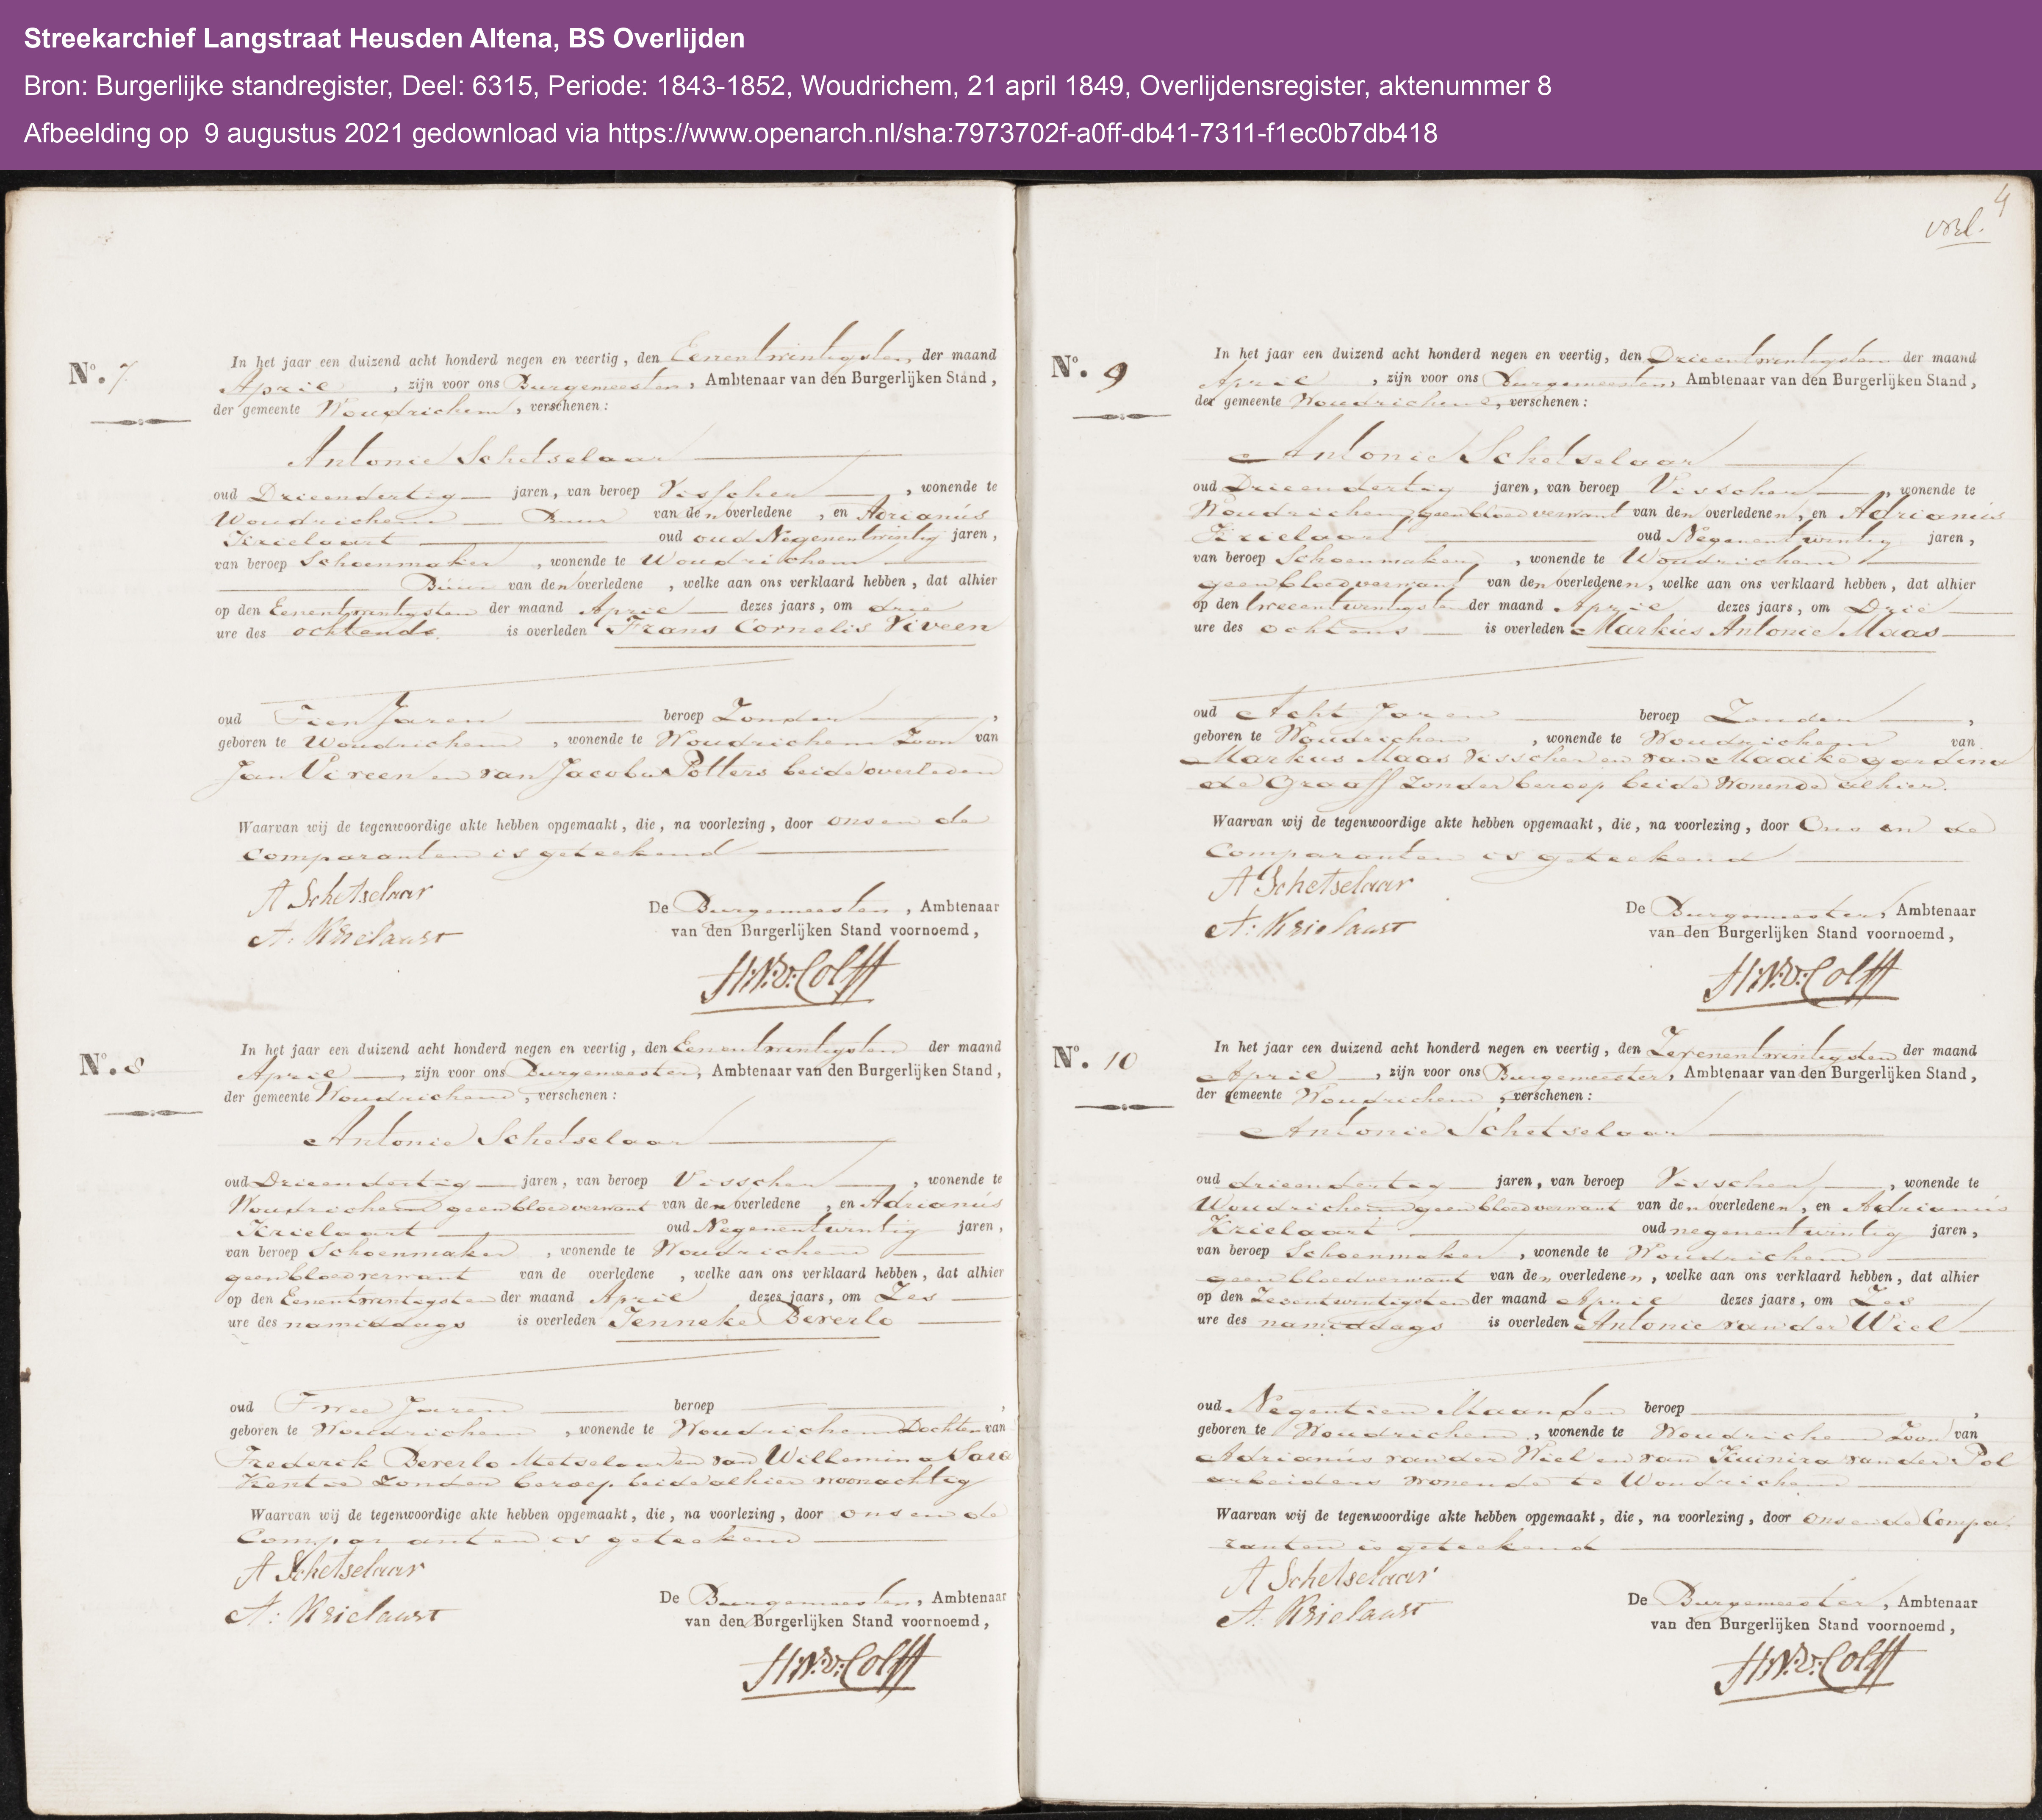 Streekarchief Langstraat Heusden Altena, BS Overlijden
Bron: Burgerlijke standregister, Deel: 6315, Periode: 1843-1852, Woudrichem, 21 april 1849, Overlijdensregister, aktenummer 8
Afbeelding op 9 augustus 2021 gedownload via https://www.openarch.nl/sha:7973702f-a0ff-db41-7311-f1ec0b7db418
No. 7
In het jaar een duizend acht honderd negen en veertig, den Eenentwintigsten der maand
April, zijn voor ons Burgemeester, Ambtenaar van den Burgerlijken Stand,
der gemeente Woudrichem, verschenen:
Antonie Schetselaar
oud Drieendertig jaren, van beroep Visscher, wonende te
Woudrichem Buur van den overledene, en Adrianus
Krielaart oud oud Negenentwintig jaren,
van beroep Schoenmaker, wonende te Woudrichem
Buur van den overledene, welke aan ons verklaard hebben, dat alhier
op den Eenentwintigsten der maand April dezes jaars, om drie
ure des ochtends is overleden Frans Cornelis Viveen
oud Tien Jaren beroep Zonder,
geboren te Woudrichem, wonende te Woudrichem Zoon van
Jan Viveen en van Jacoba Potters beide overleden
Waarvan wij de tegenwoordige akte hebben opgemaakt, die, na voorlezing, door ons en de
Comparanten is geteekend
A Schetselaar
A: Krielaart
De Burgemeester, Ambtenaar
van den Burgerlijken Stand voornoemd,
H:N:v:Colff
No. 8
In het jaar een duizend acht honderd negen en veertig, den Eenentwintigsten der maand
April, zijn voor ons Burgemeester, Ambtenaar van den Burgerlijken Stand,
der gemeente Woudrichem, verschenen:
Antonie Schetselaar
oud Drieendertig jaren, van beroep Visscher, wonende te
Woudrichem geen bloedverwant van den overledene, en Adrianus
Krielaart oud Negenentwintig jaren,
van beroep Schoenmaker, wonende te Woudrichem
geen bloedverwant van de overledene, welke aan ons verklaard hebben, dat alhier
op den Eenentwintigsten der maand April dezes jaars, om Zes
ure des namiddags is overleden Jenneke Bererlo
oud Twee Jaren beroep,
geboren te Woudrichem, wonende te Woudrichem Dochter van
Frederik Bererlo Metselaar en van Willemina Sara
zonder beroep beide alhier woonachtig
Waarvan wij de tegenwoordige akte hebben opgemaakt, die, na voorlezing, door ons en de
Comparanten is geteekend
A Schetselaar
A: Krielaart
De Burgemeester, Ambtenaar
van den Burgerlijken Stand voornoemd,
H:N:v:Colff
4
No. 9
In het jaar een duizend acht honderd negen en veertig, den Drieentwintigsten der maand
April, zijn voor ons Burgemeester, Ambtenaar van den Burgerlijken Stand,
der gemeente Woudrichem, verschenen:
Antonie Schetselaar
oud Drieendertig jaren, van beroep Visscher, wonende te
Woudrichem geen bloedverwant van den overledenen, en Adrianus
Krielaart oud Negenentwintig jaren,
van beroep Schoenmaker, wonende te Woudrichem
geen bloedverwant van den overledenen, welke aan ons verklaard hebben, dat alhier
op den tweeentwintigsten der maand April dezes jaars, om Drie
ure des ochtens is overleden Markus Antonie Maas
oud Acht Jaren beroep Zonder,
geboren te Woudrichem, wonende te Woudrichem van
Markus Maas Visscher en van Maaike gardina
de Graaff Zonder beroep beide Wonende alhier.
Waarvan wij de tegenwoordige akte hebben opgemaakt, die, na voorlezing, door Ons en de
Comparanten is geteekend
A Schetselaar
A: Krielaart
De Burgemeester, Ambtenaar
van den Burgerlijken Stand voornoemd,
H:N:v:Colff
No. 10
In het jaar een duizend acht honderd negen en veertig, den Zevenentwintigsten der maand
April, zijn voor ons Burgemeester, Ambtenaar van den Burgerlijken Stand,
der gemeente Woudrichem, verschenen:
Antonie Schetselaar
oud drieendertig jaren, van beroep Visscher, wonende te
Woudrichem geen bloedverwant van den overledenen, en Adrianus
Krielaart oud negenentwintig jaren,
van beroep Schoenmaker, wonende te Woudrichem
geen bloedverwant van den overledenen, welke aan ons verklaard hebben, dat alhier
op den Zesentwintigsten der maand April dezes jaars, om Zes
ure des namiddags is overleden Antonie van der Wiel
oud Negentien Maanden beroep,
geboren te Woudrichem, wonende te Woudrichem Zoon van
Adrianus van der Wiel en van van der Pol
arbeiders wonende te Woudrichem
Waarvan wij de tegenwoordige akte hebben opgemaakt, die, na voorlezing, door ons en de Compa-
ranten is geteekend
A Schetselaar
A: Krielaart
De Burgemeester, Ambtenaar
van den Burgerlijken Stand voornoemd,
H:N:v:Colff